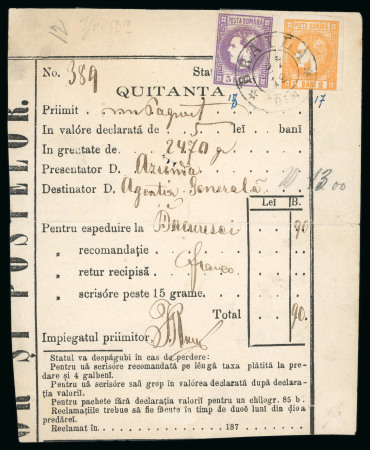 No. 389 Stat
QUITANTA
POSTA ROMANA
POSTA ROMANA
BRAILA
18 17
Priimit un Paquet
In valóre declarată de 5 lei bani
In greutate de 2470 g
Presentator D.
Destinator D. Agentia Generală
13 00
Lei B.
Pentru espeduire la Bucuresci 90
„ recomandație
„ retur recipisă
„ scrisóre peste 15 grame.
Total 90.
Impiegatul priimitor
Statul va despăgubi în cas de perdere:
Pentru uă scrisóre recomandată pe lêngă taxa plătită la pre-
dare și 4 galbeni.
Pentru uă scrisóre saŭ grop în valórea declarată după declara-
ția valorii.
Pentru pachete fără declarația valorii pentru un chilogr. 85 b.
Reclamațiile trebue să fie făcute în timp de două luni din dioa
predărei.
Reclamat în 187
OR ȘI POSTELOR.